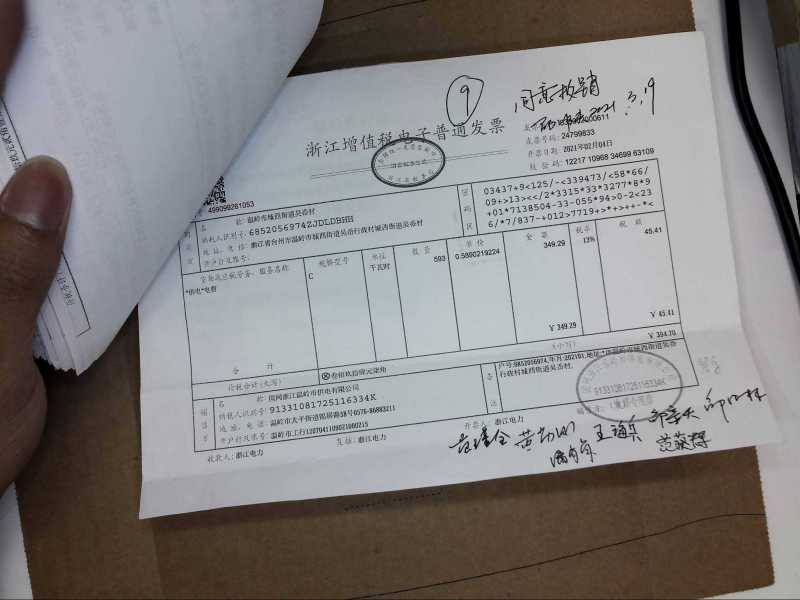 9
同意报销
2021.3.19
浙江增值税电子普通发票
发票号码: 24799833
开票日期: 2021年02月04日
校验码: 12217 10968 34699 63109
499099261053
名称: 温岭市城西街道吴岙村
纳税人识别号: 6852056974ZJDLDBHH
地址、电话: 浙江省台州市温岭市城西街道吴岙行政村城西街道吴岙村
开户行及账号:
密码区
03437+9<125/-<339473/<58*66/
09+>13><</2*3315*33*3277*8*9
+01*7138504-33-055*94>0-2<23
6/*7/837-+012>7719+>*+>++-*<
货物或应税劳务、服务名称 规格型号 单位 数量 单价 金额 税率 税额
*供电*电费 C 千瓦时 593 0.5890219224 349.29 13% 45.41
合计 ¥349.29 ¥45.41
价税合计(大写) ⊗叁佰玖拾肆元柒角 (小写) ¥394.70
销售方
名称: 国网浙江温岭市供电有限公司
纳税人识别号: 91331081725116334K
地址、电话: 温岭市太平街道锦屏路58号0576-86883211
开户行及账号: 温岭市工行1207041109021080215
备注
户号:6852056974,年月:202101,地址:
行政村城西街道吴岙村,
91331081725116334K
收款人: 浙江电力 复核: 浙江电力 开票人: 浙江电力